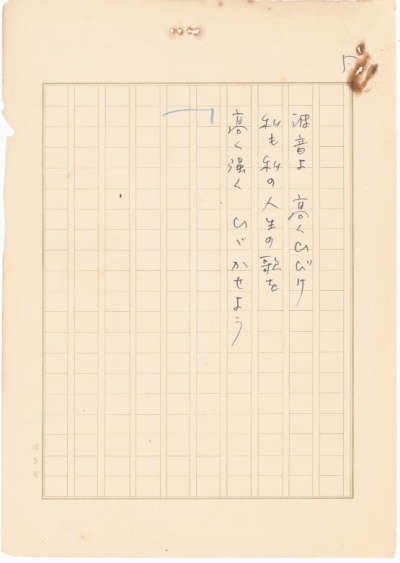 波音よ 高くひびけ
私も私の人生の歌を
高く強く ひびかせよう